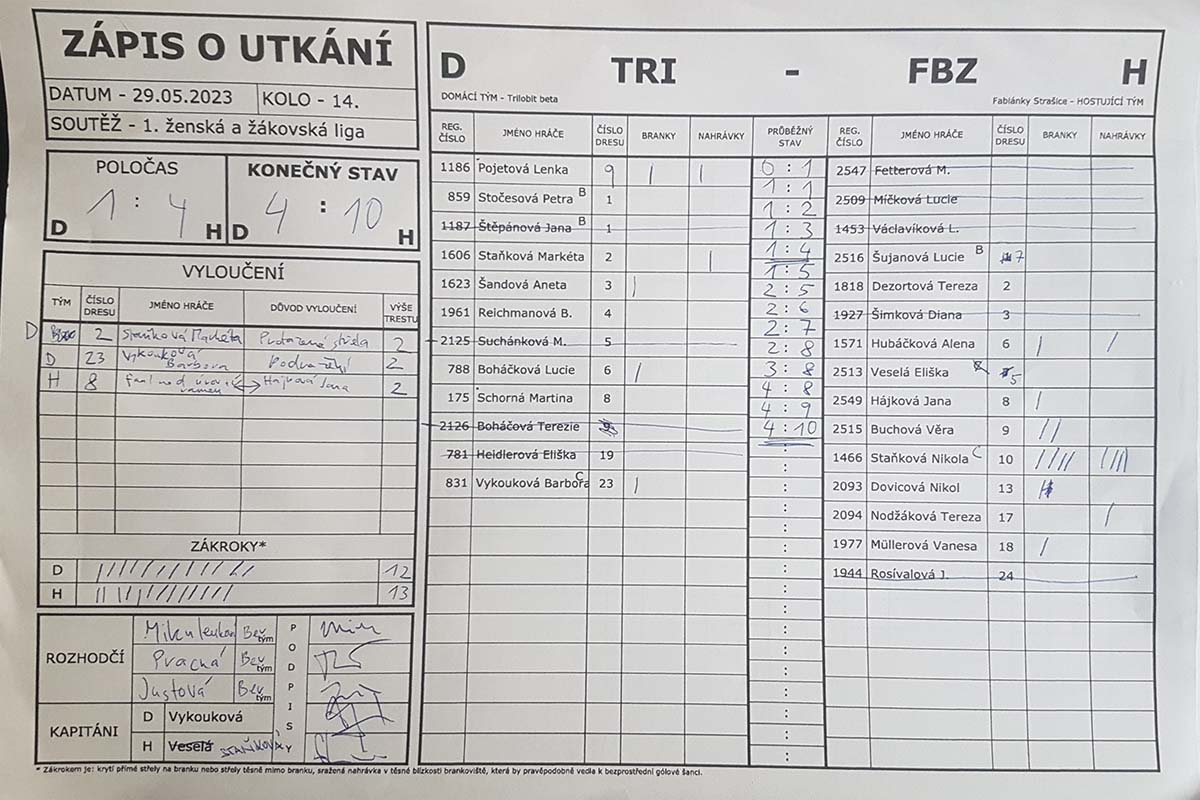 ZÁPIS O UTKÁNÍ
DATUM - 29.05.2023 KOLO - 14.
SOUTĚŽ - 1. ženská a žákovská liga
POLOČAS KONEČNÝ STAV
D 1 : 4 H D 4 : 10 H
VYLOUČENÍ
TÝM ČÍSLO DRESU JMÉNO HRÁČE DŮVOD VYLOUČENÍ VÝŠE TRESTU
D 2 Staňková Markéta Protažená střela 2
D 23 Vykouková Barbora Podražení 2
H 8 Hájková Jana 2
ZÁKROKY*
D 12
H 13
ROZHODČÍ
Bev tým
Pracná Bev tým
Justová Bev tým
PODPISY
KAPITÁNI
D Vykouková
H Veselá STAŇKOVÁ
D TRI - FBZ H
DOMÁCÍ TÝM - Trilobit beta Fabiánky Strašice - HOSTUJÍCÍ TÝM
REG. ČÍSLO JMÉNO HRÁČE ČÍSLO DRESU BRANKY NAHRÁVKY PRŮBĚŽNÝ STAV REG. ČÍSLO JMÉNO HRÁČE ČÍSLO DRESU BRANKY NAHRÁVKY
1186 Pojetová Lenka 9 | |
859 Stočesová Petra B 1
1187 Štěpánová Jana B 1
1606 Staňková Markéta 2 |
1623 Šandová Aneta 3 |
1961 Reichmanová B. 4
2125 Suchánková M. 5
788 Boháčková Lucie 6 |
175 Schorná Martina 8
2126 Boháčová Terezie 9
781 Heidlerová Eliška 19
831 Vykouková Barbora C 23 |
0 : 1
1 : 1
1 : 2
1 : 3
1 : 4
1 : 5
2 : 5
2 : 6
2 : 7
2 : 8
3 : 8
4 : 8
4 : 9
4 : 10
2547 Fetterová M.
2509 Míčková Lucie
1453 Václavíková L.
2516 Šujanová Lucie B 7
1818 Dezortová Tereza 2
1927 Šimková Diana 3
1571 Hubáčková Alena 6 | |
2513 Veselá Eliška 5
2549 Hájková Jana 8 |
2515 Buchová Věra 9 ||
1466 Staňková Nikola C 10 |||| ||||
2093 Dovicová Nikol 13
2094 Nodžáková Tereza 17 |
1977 Müllerová Vanesa 18 |
1944 Rosívalová J. 24
* Zákrokem je: krytí přímé střely na branku nebo střely těsně mimo branku, sražená nahrávka v těsné blízkosti brankoviště, která by pravěpodobně vedla k bezprostřední gólové šanci.